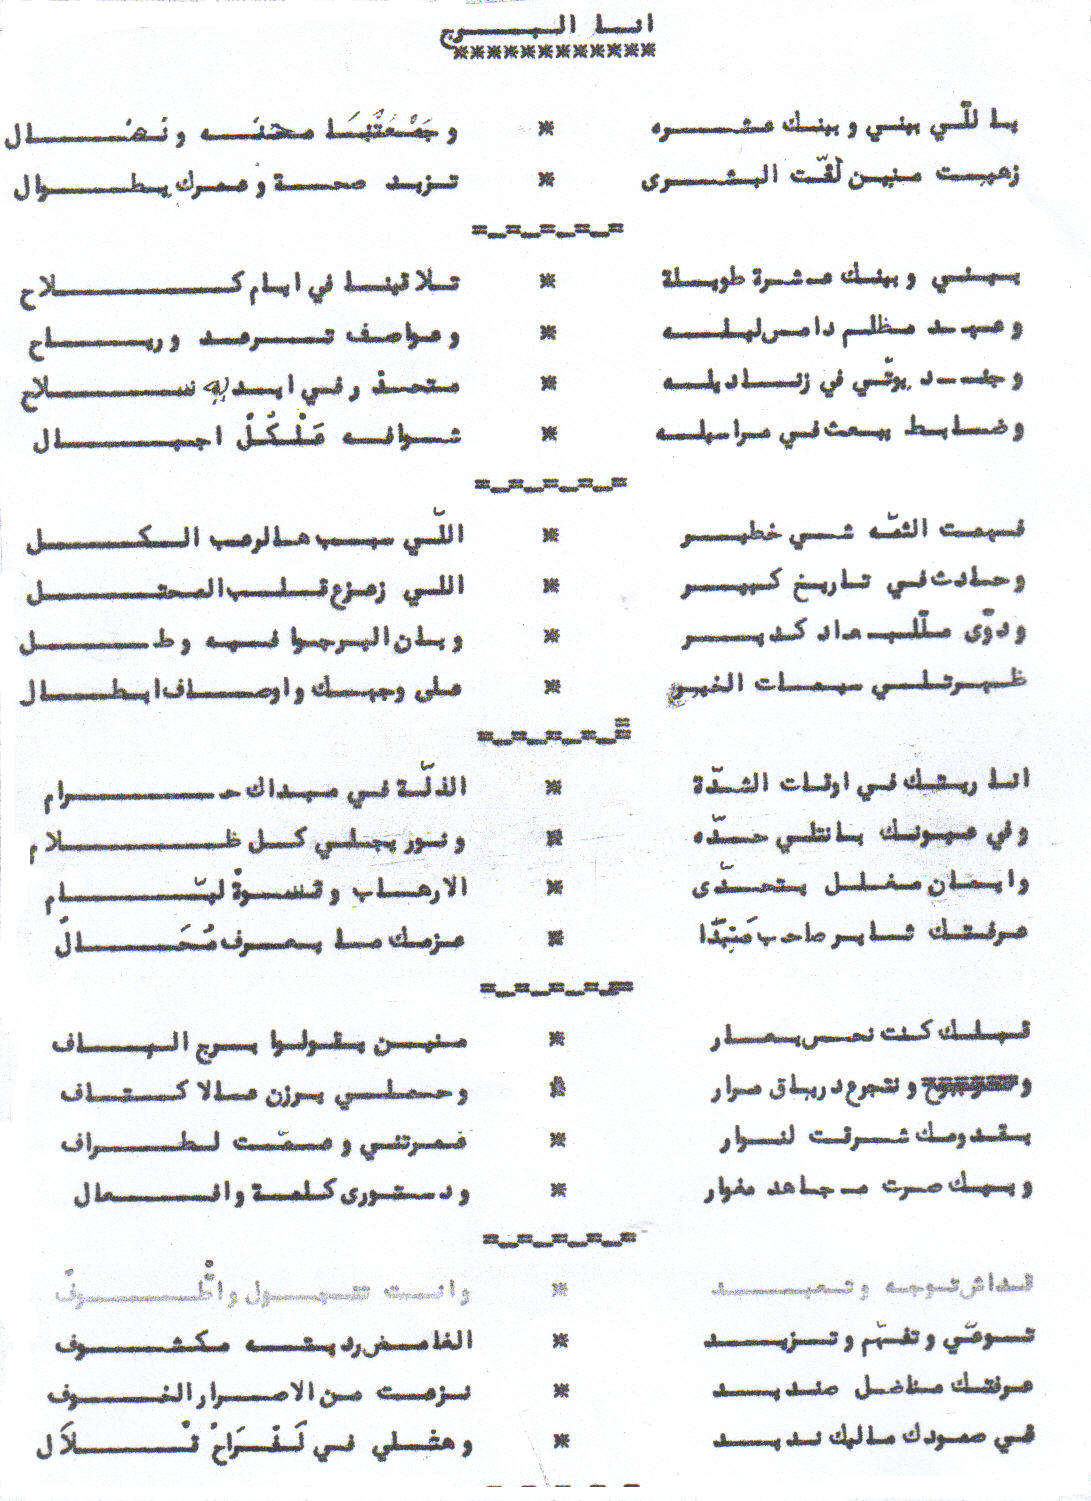 انا البرج
************
يا للّي بيني وبينك عشره * وجَمْعَتْنَا محنَه ونضَال
زهيت منين لقّت البشرى * تزيد صحة وعمرك يطوال
=_=_=_=_=
بيني وبينك عشرة طويلة * تلاقينا في ايام كلاح
وعهد مظلم دامس ليله * وعواصف ترعد ورياح
وجند يوتّي في زناديله * متحذر في ايديه سلاح
وضابط يبعث في مراسيله * شوافه عَلْكُلّ اجبال
=_=_=_=_=
فهمت الثمّه شي خطير * اللّي سبب هالرعب الكل
وحادث في تاريخ كبير * اللي زعزع قلب المحتل
ودوّى علّلبعاد كدير * وبان البرجوا فيه وطل
ظهرتلي سيمات الخير * على وجهك واوصاف ابطال
=_=_=_=_=
انا ريتك في اوقات الشدّة * الذلّة في مبداك حرام
وفي عيونك بانتلي حدّه * ونور يجلي كل ظلام
وايمان مغلل يتحدّى * الارهاب وقسوة ليّام
عرفتك ثاير صاحب مَبَدّا * عزمك ما يعرف مُحَالْ
=_=_=_=_=
قبلك كنت نحس بعار * منين يقولوا برج الباف
و ونتجرع درياق مرار * وحملي يرزن عالاكتاف
بقدومك شرقت لنوار * غمرتني وعمّت لطراف
وبيك صرت مجاهد مغوار * ودستوري كلمة وافعال
=_=_=_=_=
قداش توجه وتعيد * وانت تقول والظروف
توعّي وتفهّم وتزيد * الغامض رديته مكشوف
عرفتك مناضل صنديد * نزعت من الاصرار الخوف
في صمودك ماليك نديد * وهثلي في لَفْرَاحْ تْلاَل
=_=_=_=_=